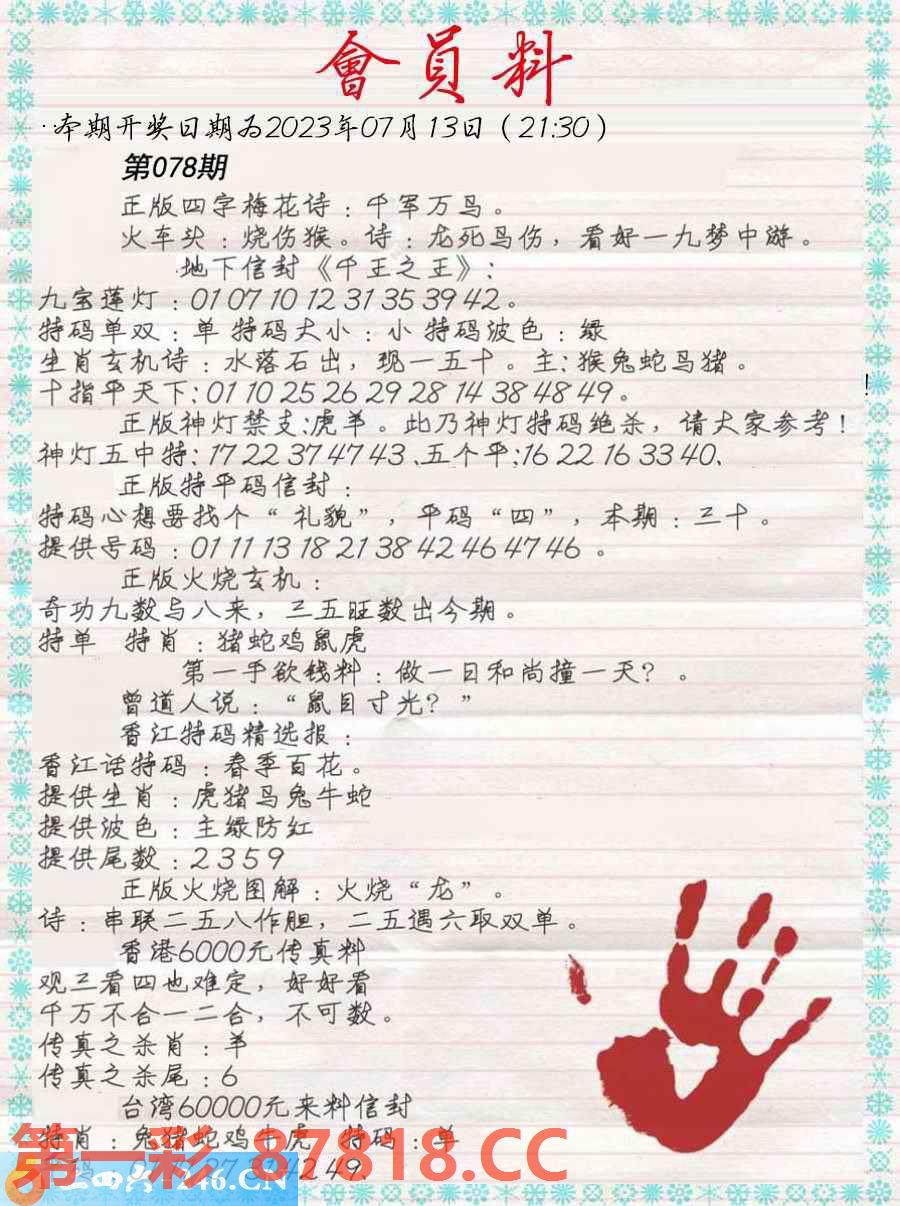 會員料
·本期开奖日期为2023年07月13日（21:30）
第078期
正版四字梅花诗：千军万鸟。
火车头：烧伤猴。诗：龙死鸟伤，看好一九梦中游。
地下信封《千王之王》：
九宝莲灯：01 07 10 12 31 35 39 42。
特码单双：单 特码大小：小 特码波色：绿
生肖玄机诗：水落石出，现一五十。主：猴兔蛇鸟猪。
十指平天下：01 10 25 26 29 28 14 38 48 49。
!
正版神灯禁支:虎羊。此乃神灯特码绝杀，请大家参考！
神灯五中特：17 22 37 47 43、五个平:16 22 16 33 40、
正版特平码信封：
特码心想要找个“礼貌”，平码“四”，本期：三十。
提供号码：01 11 13 18 21 38 42 46 47 46 。
正版火烧玄机：
奇功九数与八来，三五旺数出今期。
特单 特肖：猪蛇鸡鼠虎
第一手欲钱料：做一日和尚撞一天？。
曾道人说：“鼠目寸光？”
香江特码精选报：
香江话特码：春季百花。
提供生肖：虎猪鸟兔牛蛇
提供波色：主绿防红
提供尾数：2 3 5 9
正版火烧图解：火烧“龙”。
诗：串联二五八作胆，二五遇六取双单。
香港6000元传真料
观三看四也难定，好好看
千万不合一二合，不可数。
传真之杀肖：羊
传真之杀尾：6
台湾60000元来料信封
特肖：兔猪蛇鸡牛虎 特码：单
27 31 42 49、
第一彩 87818.CC
246.CN